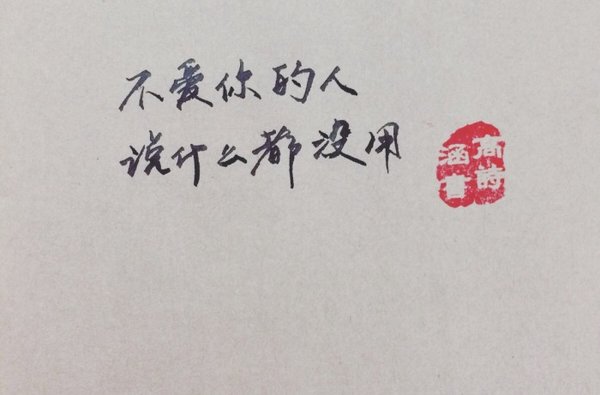 不爱你的人
说什么都没用
高诗
涵书